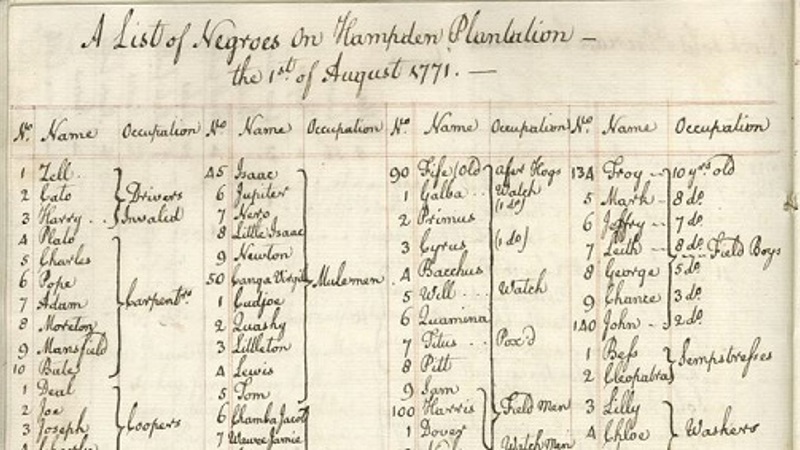 A List of Negroes On Hampden Plantation —
the 1st of August 1771. —
No. Name Occupation
1 Zell
2 Cato Drivers
3 Harry Invalid
4 Plato
5 Charles
6 Pope
7 Adam Carpentrs
8 Moreton
9 Mansfield
10 Bute
1 Deal
2 Joe
3 Joseph Coopers
No. Name Occupation
45 Isaac
6 Jupiter
7 Nero
8 Little Isaac
9 Newton
50 Ganga Virgil Mulemen
1 Cudjoe
2 Quashy
3 Littleton
4 Lewis
5 Tom
6 Clamba Jacob
7 Jamie
No. Name Occupation
90 Fife /old after Hogs
1 Galba Watch
2 Primus (1 do)
3 Cyrus (1 do)
4 Bacchus
5 Will Watch
6 Quamina
7 Titus Pox'd
8 Pitt
9 Sam
100 Harris Field Men
1 Dover Watch Men
No. Name Occupation
134 Troy 10 yrs old
5 Mark 8 do
6 Joffry 7 do
7 Leith 8 do Field Boys
8 George 5 do
9 Chance 3 do
140 John 2 do
1 Bess Sempstresses
2 Cleopatra
3 Lilly
4 Chloe Washers